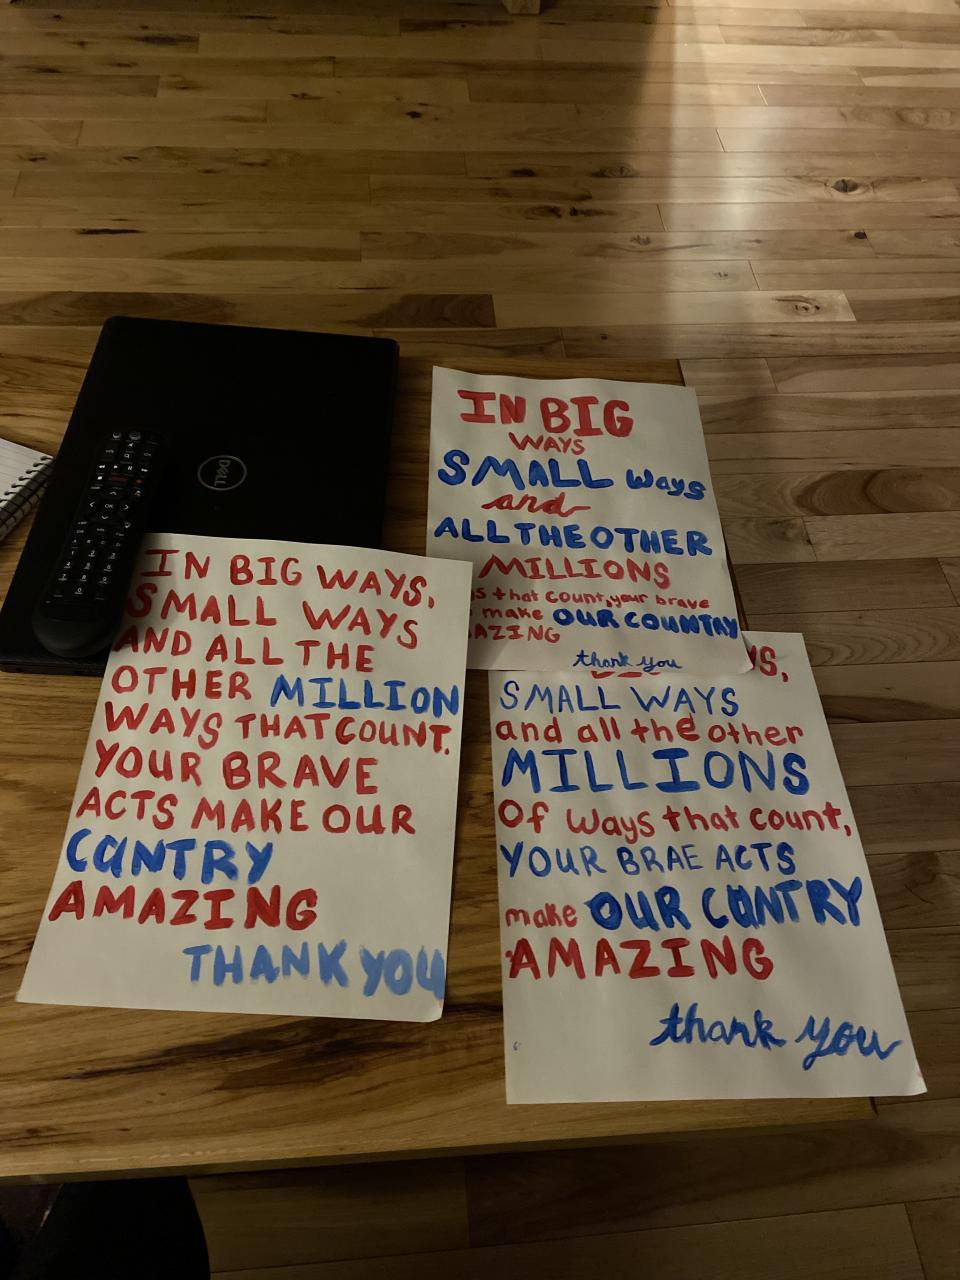 IN BIG
WAYS
SMALL ways
and
ALL THE OTHER
MILLIONS
s that count, your brave
make OUR COUNTRY
AZING
thank you
DELL
IN BIG WAYS,
SMALL WAYS
AND ALL THE
OTHER MILLION
WAYS THAT COUNT.
YOUR BRAVE
ACTS MAKE OUR
CANTRY
AMAZING
THANK YOU
YS,
SMALL WAYS
and all the other
MILLIONS
Of ways that count,
YOUR BRAE ACTS
make OUR CUNTRY
AMAZING
thank you